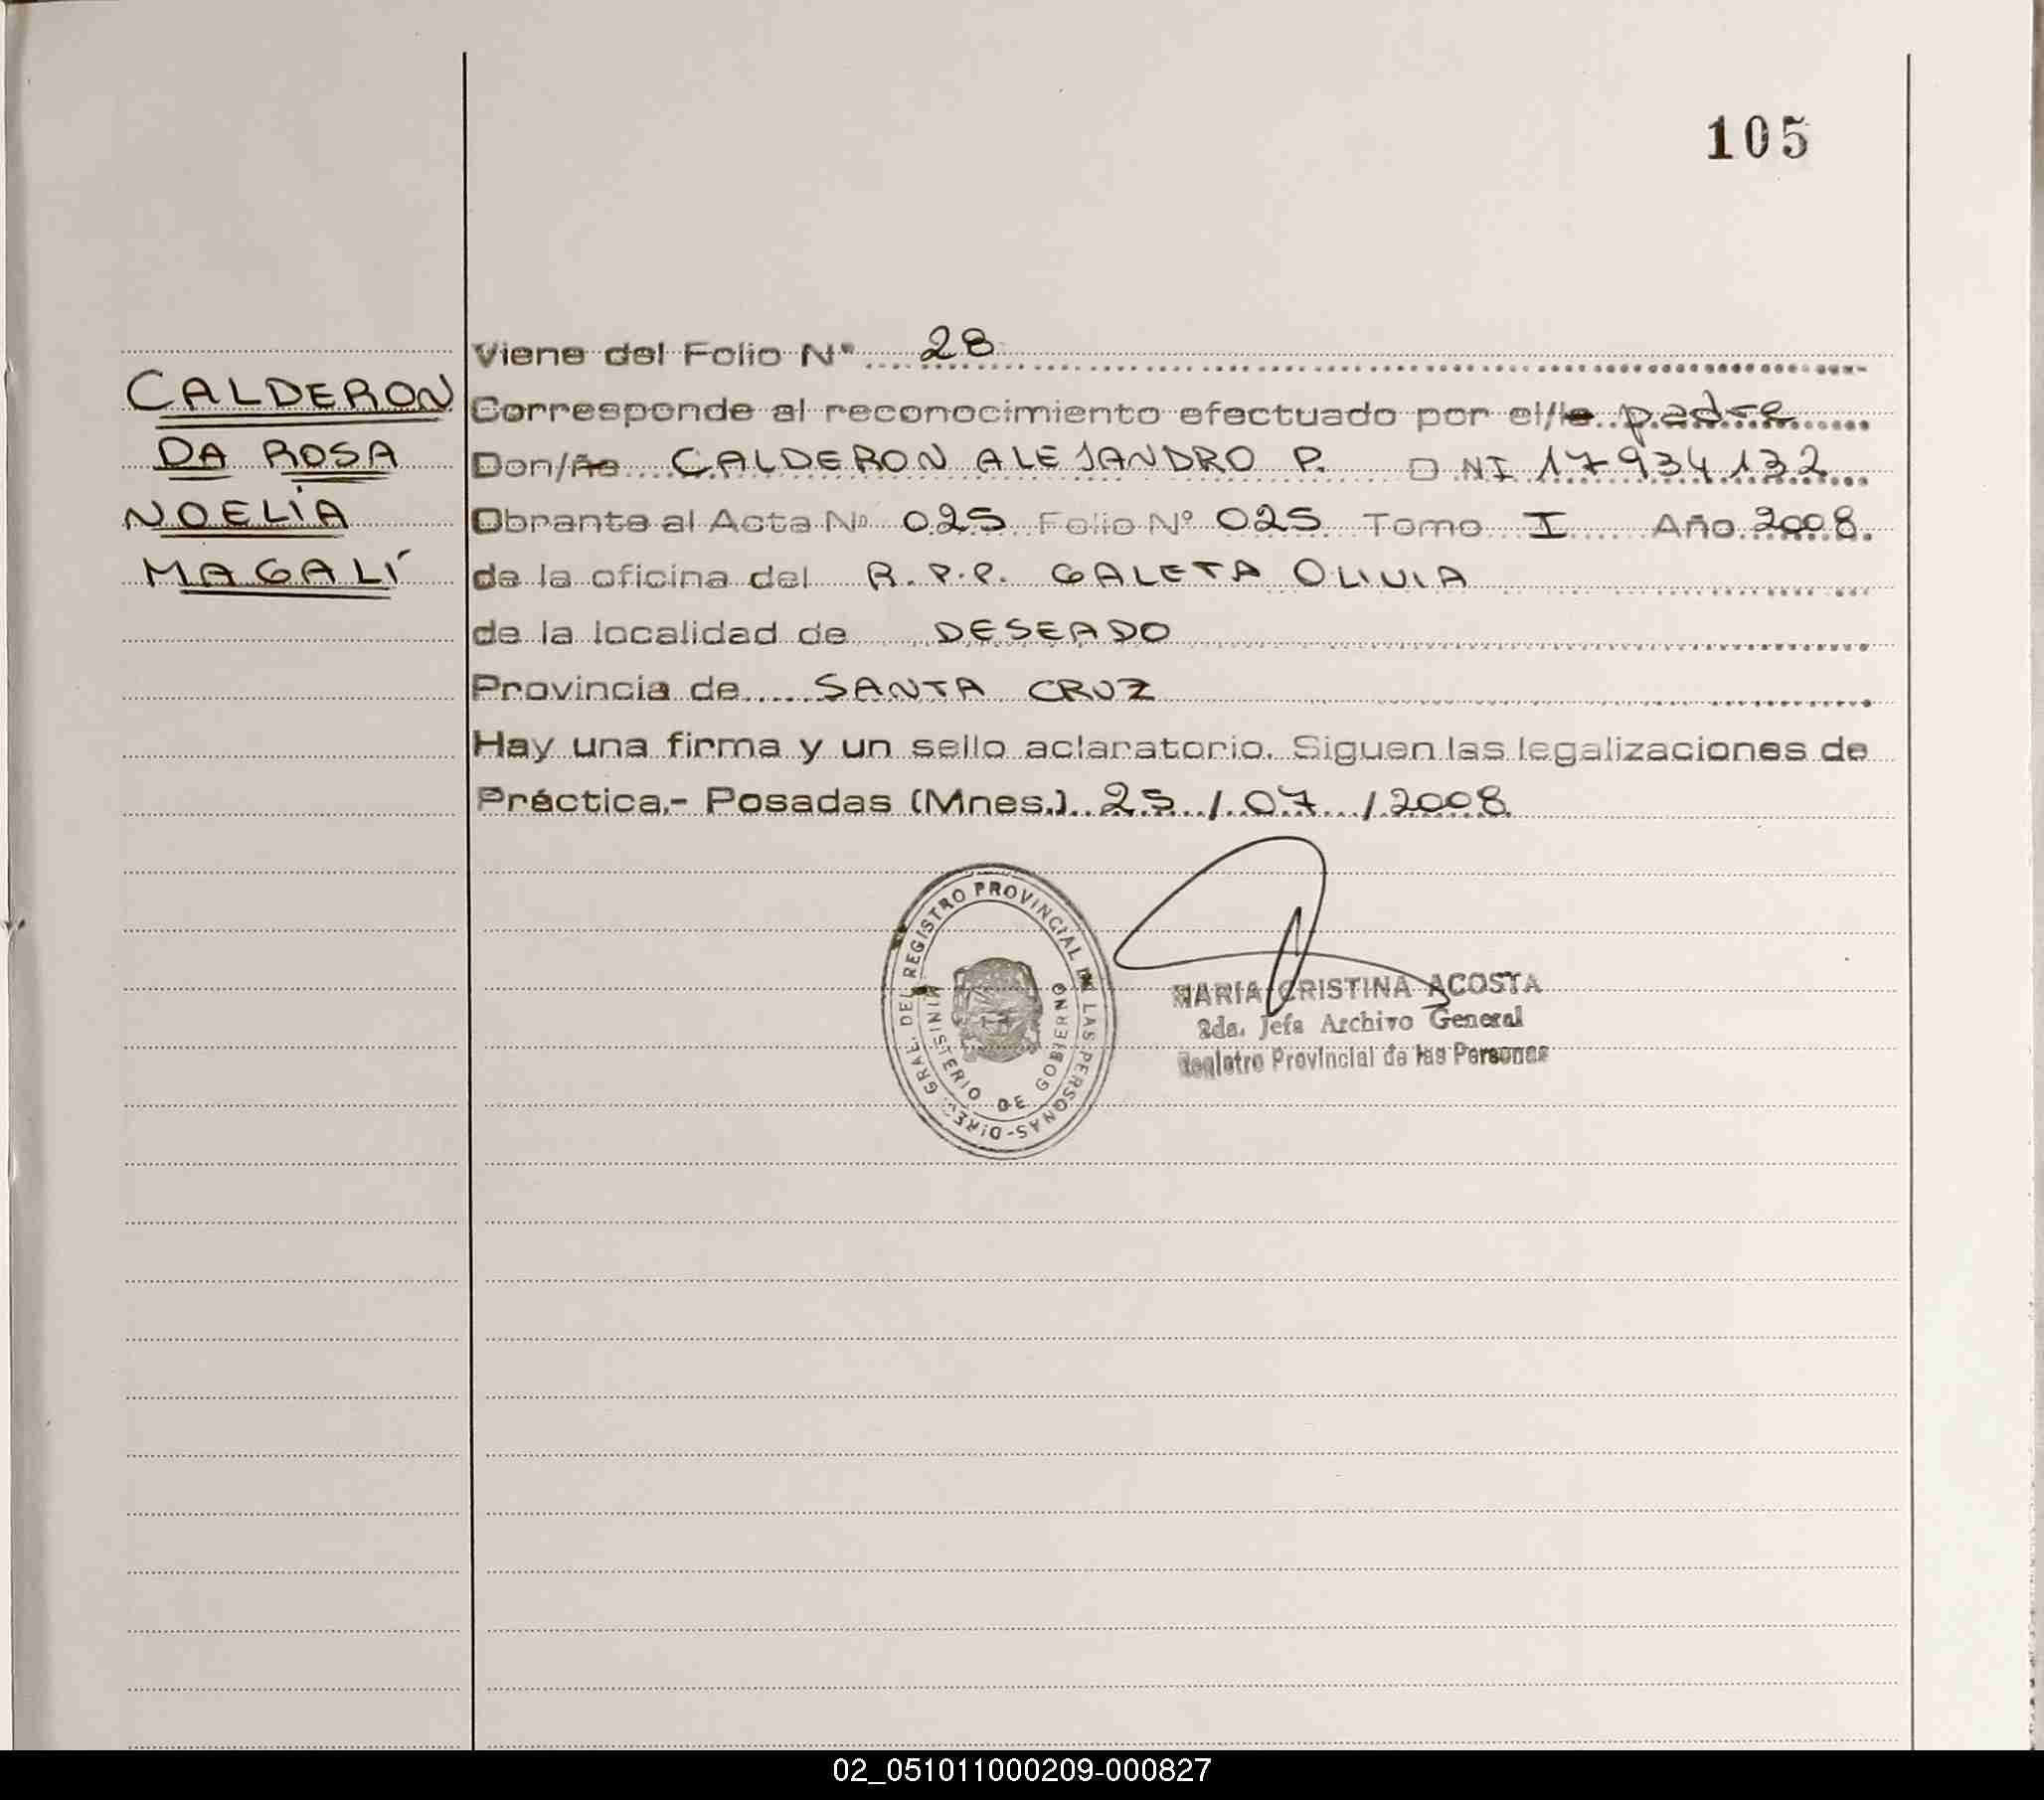 105
CALDERON
DA ROSA
NOELIA
MAGALÍ
Viene del Folio N° 28
Corresponde al reconocimiento efectuado por el/la padre
Don/ña CALDERON ALEJANDRO P. DNI 17934132
Obrante al Acta N° 025 Folio N° 025 Tomo I Año 2008.
de la oficina del R.P.P. CALETA OLIVIA
de la localidad de DESEADO
Provincia de SANTA CRUZ
Hay una firma y un sello aclaratorio. Siguen las legalizaciones de
Práctica.- Posadas (Mnes.) 25 / 07 / 2008
GRAL. DEL REGISTRO PROVINCIAL DE LAS PERSONAS-DIREC.
MINISTERIO DE GOBIERNO
MARIA CRISTINA ACOSTA
2da. Jefa Archivo General
Registro Provincial de las Personas
02_051011000209-000827